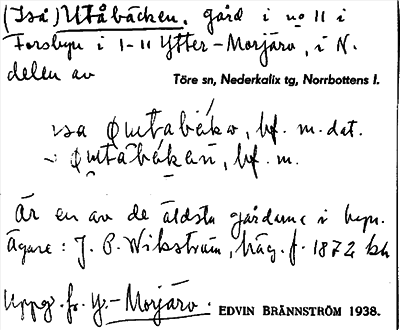 (Iså) Utåbäcken. gård i no 11 i
Forsbyn i 1-11 Ytter-Morjärv, i N.
delen av
Töre sn, Nederkalix tg, Norrbottens l.
bf. m. dat.
bf. m.
Är en av de äldsta gårdarna i byn.
Ägare: J. P. Wikström, häg. f. 1872
Uppg. fr. Y.-Morjärv. EDVIN BRÄNNSTRÖM 1938.